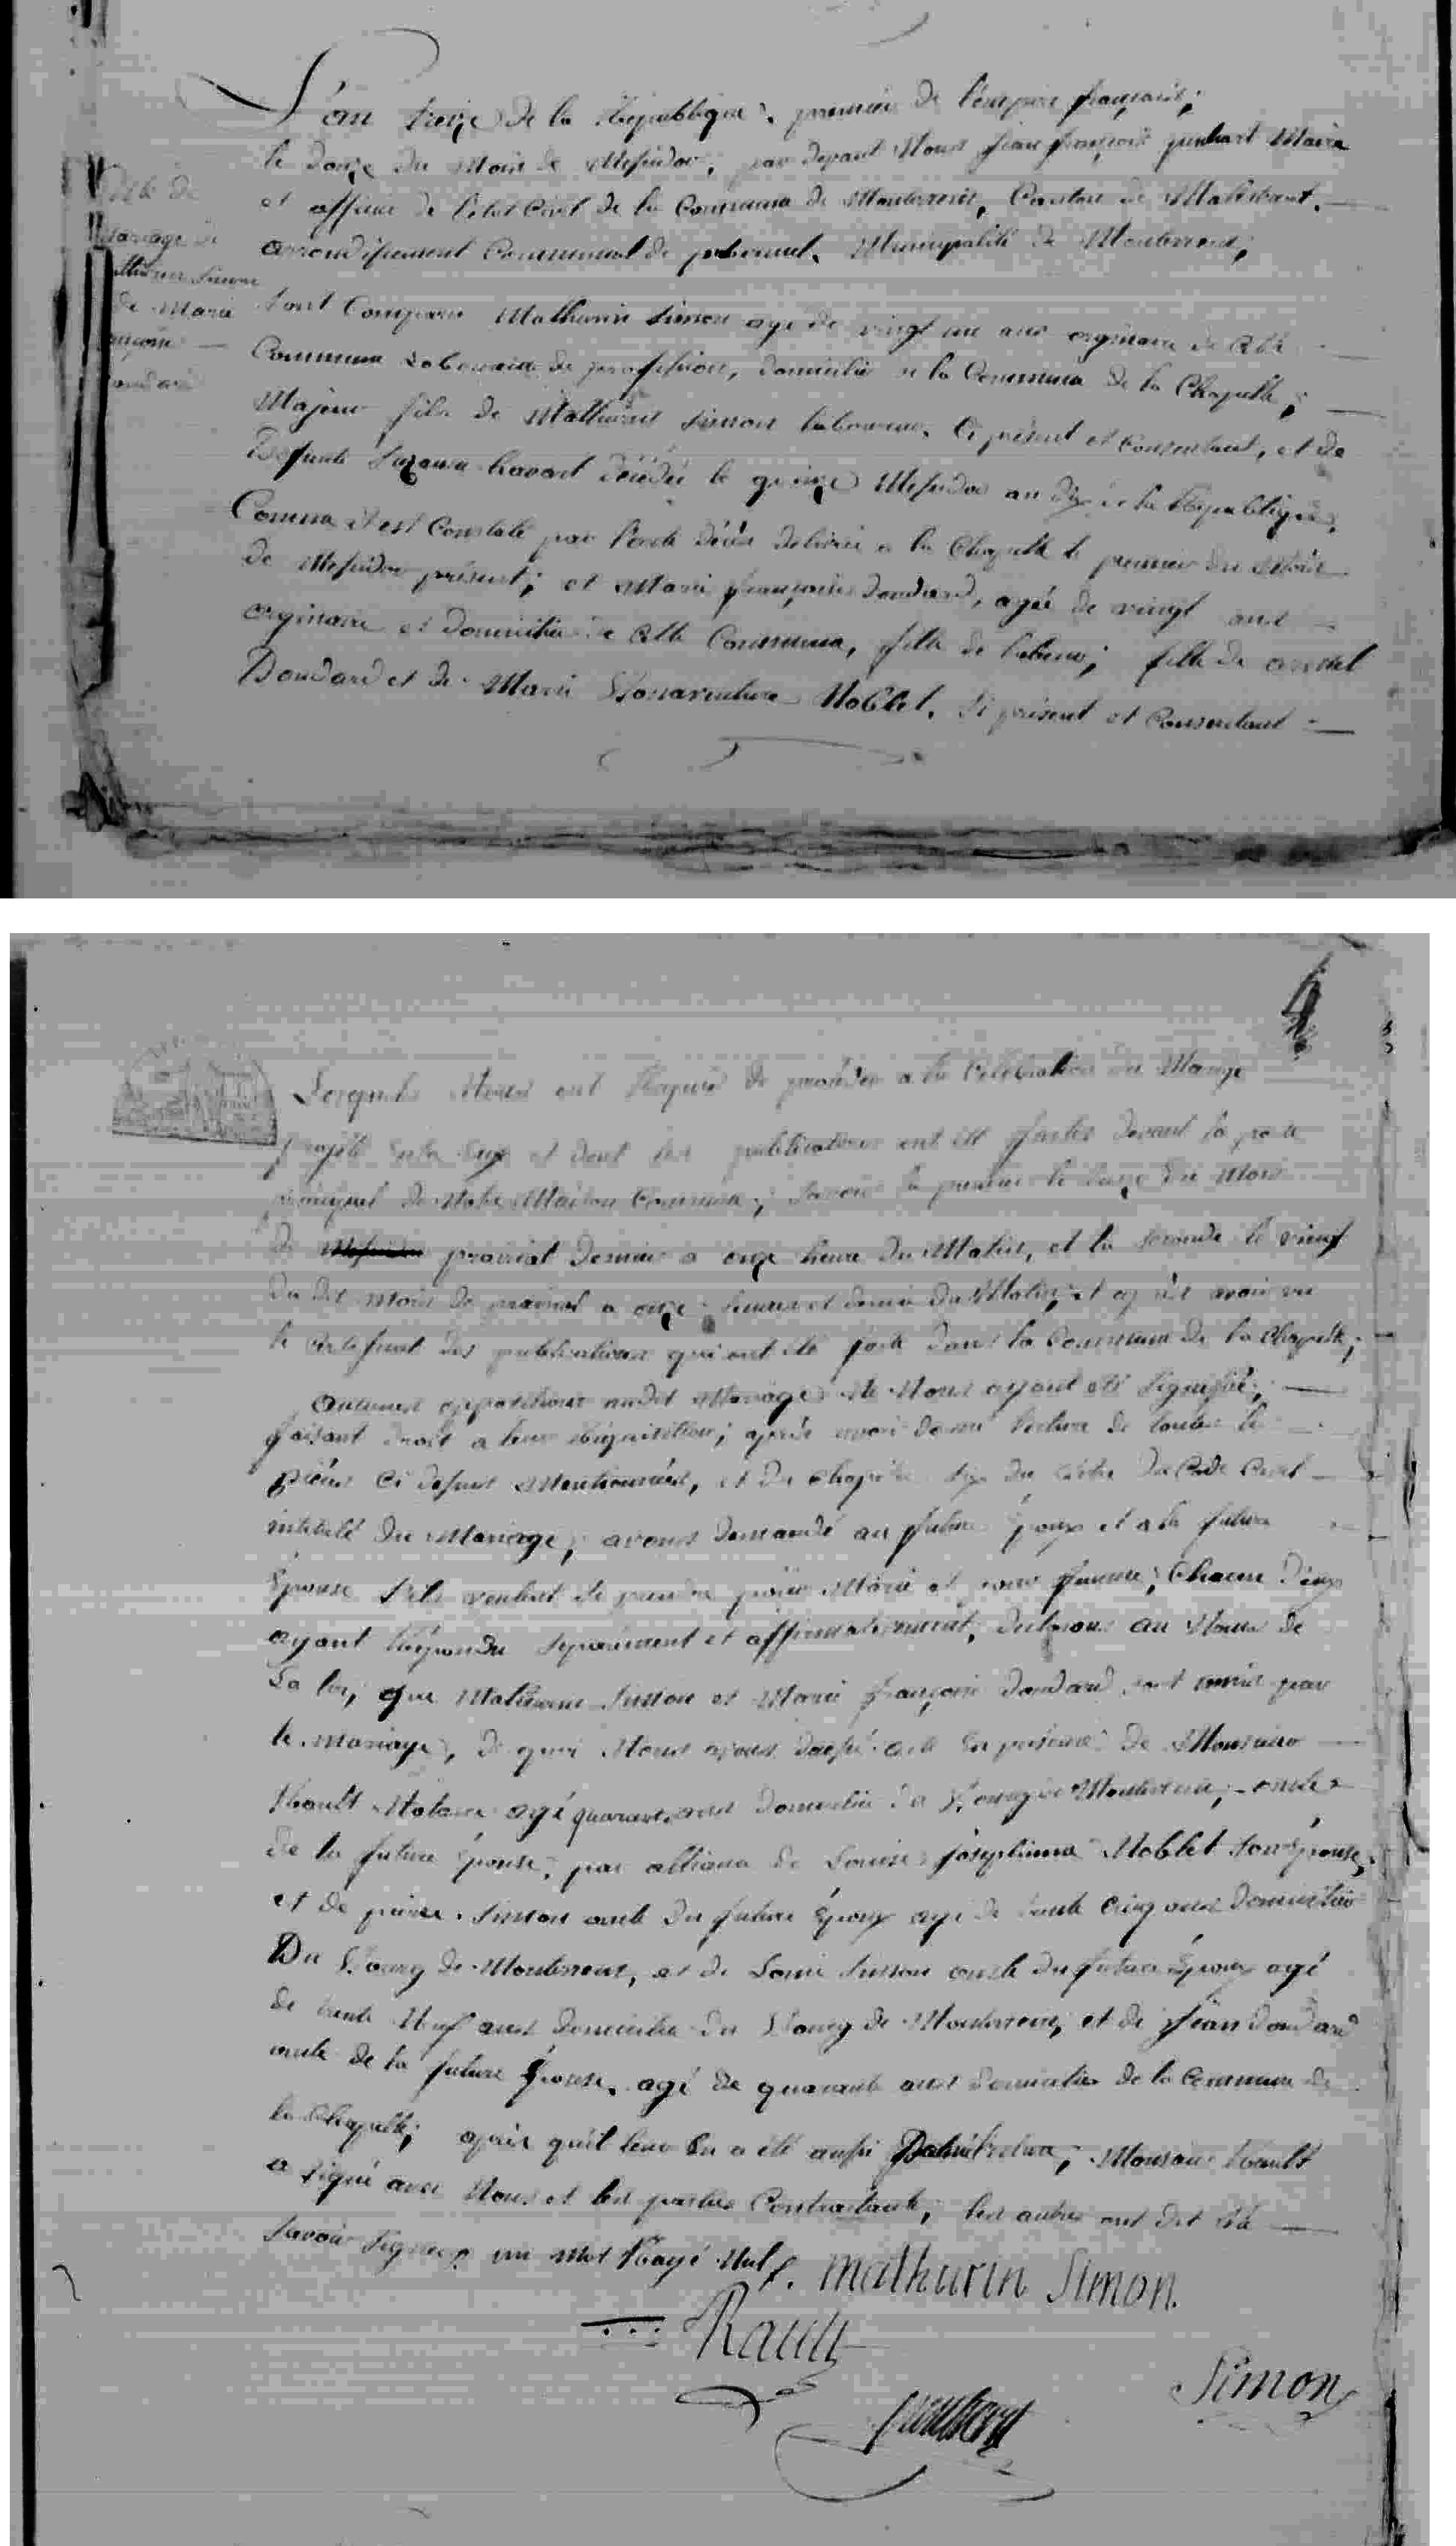 L'an treize de la République, premier de l'empire français;
le douze du mois de Messidor, par devant Nous jean françois Maire
et officier de l'état Civil de la Commune de Monterrein, Canton de Malestroit,
arrondissement Communal de ploermel, Municipalité de Monterrein;
acte de
Mariage de
Simon
de Marie
sont Comparu Mathurin Simon agé de vingt un ans originaire de cette
Commune Laboureur de profession, domicilié de la Commune de la Chapelle;
Majeur fils de Mathurin Simon laboureur, Ci présent et Consentant, et de
Defunte Suzanne havart décédée le quinze Messidor an dix de la République,
Comme il est Constaté par l'acte décès délivré a la Chapelle le premier du Mois
de Messidor présent; et Marie françoise doudard, agée de vingt ans
originaire et domiciliée de cette Commune, fille de labeur; fille de
Doudard et de Marie Bonaventure Noblet, Ci présent et Consentant
4
Lesquels Nous ont Requis de procéder a la Célébration du Mariage
projeté entre Eux et dont les publications ont été faites devant la porte
principal de Notre Maison Commune; savoir la premiere le du Mois
de prairial dernier a onze heure du Matin, et la seconde le
du dit mois de prairial a onze heures et demie du Matin, et avoir vu
le certificat des publications qui ont été faite dans la Commune de la Chapelle;
aucunes oppositions audit Mariage Ne Nous ayant été signifié;
faisant droit a leur Réquisition; après avoir donné lecture de toutes les
pièces Ci dessus Mentionnées, et du chapitre six du titre du Code Civil
intitulé du Mariage; avons demandé au futur Epoux et a la future
Epouse s'ils veulent se prendre pour Mari et pour femme; Chacun d'eux
ayant Répondu séparément et affirmativement, déclarons au Nom de
La loi, que Mathurin Simon et Marie françoise doudard sont unis par
le mariage, de quoi Nous avons dressé acte En présence de Monsieur
Rault Notaire agé quarante ans domicilié du Bourg de Monterrein, oncle
de la future Epouse, par alliance de Louise joséphinne Noblet son épouse,
et de pierre Simon oncle du futur Epoux agé de trente Cinq ans domicilié
Du Bourg de Monterrein, et de Louis Simon oncle du futur Epoux agé
de trente Neuf ans domicilié du Bourg de Monterrein, et de jean doudard
oncle de la future Epouse, agé de quarante ans domicilié de la Commune de
la Chapelle; après qu'il leur En a été aussi Donné lecture; Monsieur Rault
a signé avec Nous et les parties Contractante, les autres ont dit Ne
savoir signer, un mot Rayé Nul. mathurin Simon.
Rault
Simon